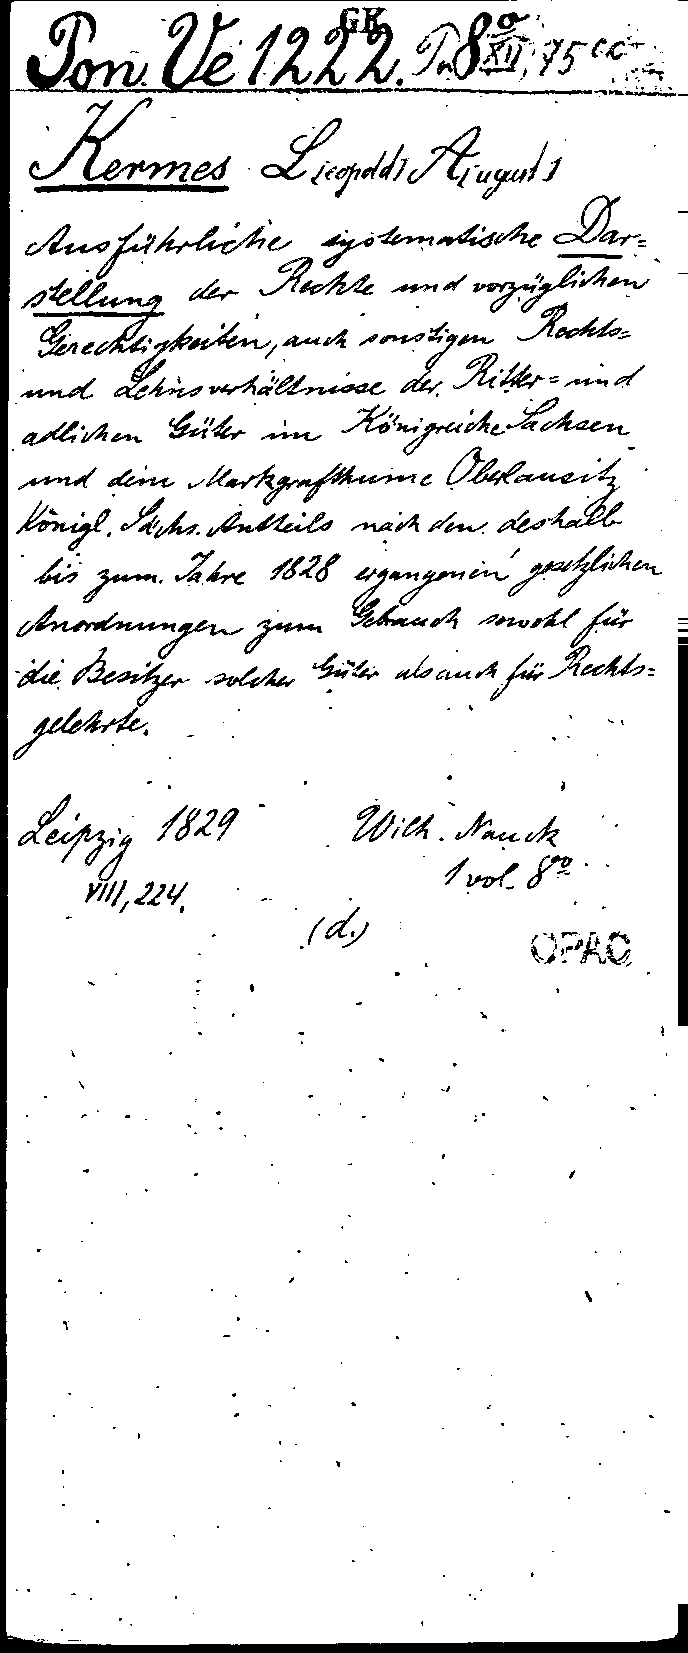 GK
Pon. Ve 1222. Pn 8° XII, 75 cc
Kermes L(eopold) A(ugust)
Ausführliche systematische Dar=
stellung der Rechte und vorzüglichen
Gerechtigkeiten, auch sonstigen Rechts=
und Lehnsverhältnisse der Ritter= und
adlichen Güter im Königreiche Sachsen
und dem Markgrafthume Oberlausitz
Königl. Sächs. Antheils nach den deshalb
bis zum Jahre 1828 ergangenen gesetzlichen
Anordnungen zum Gebrauch sowohl für
die Besitzer solcher Güter als auch für Rechts=
gelehrte.
Leipzig 1829 Wilh. Nauck
VIII, 224. 1 vol. 8vo
(d.)
OPAC